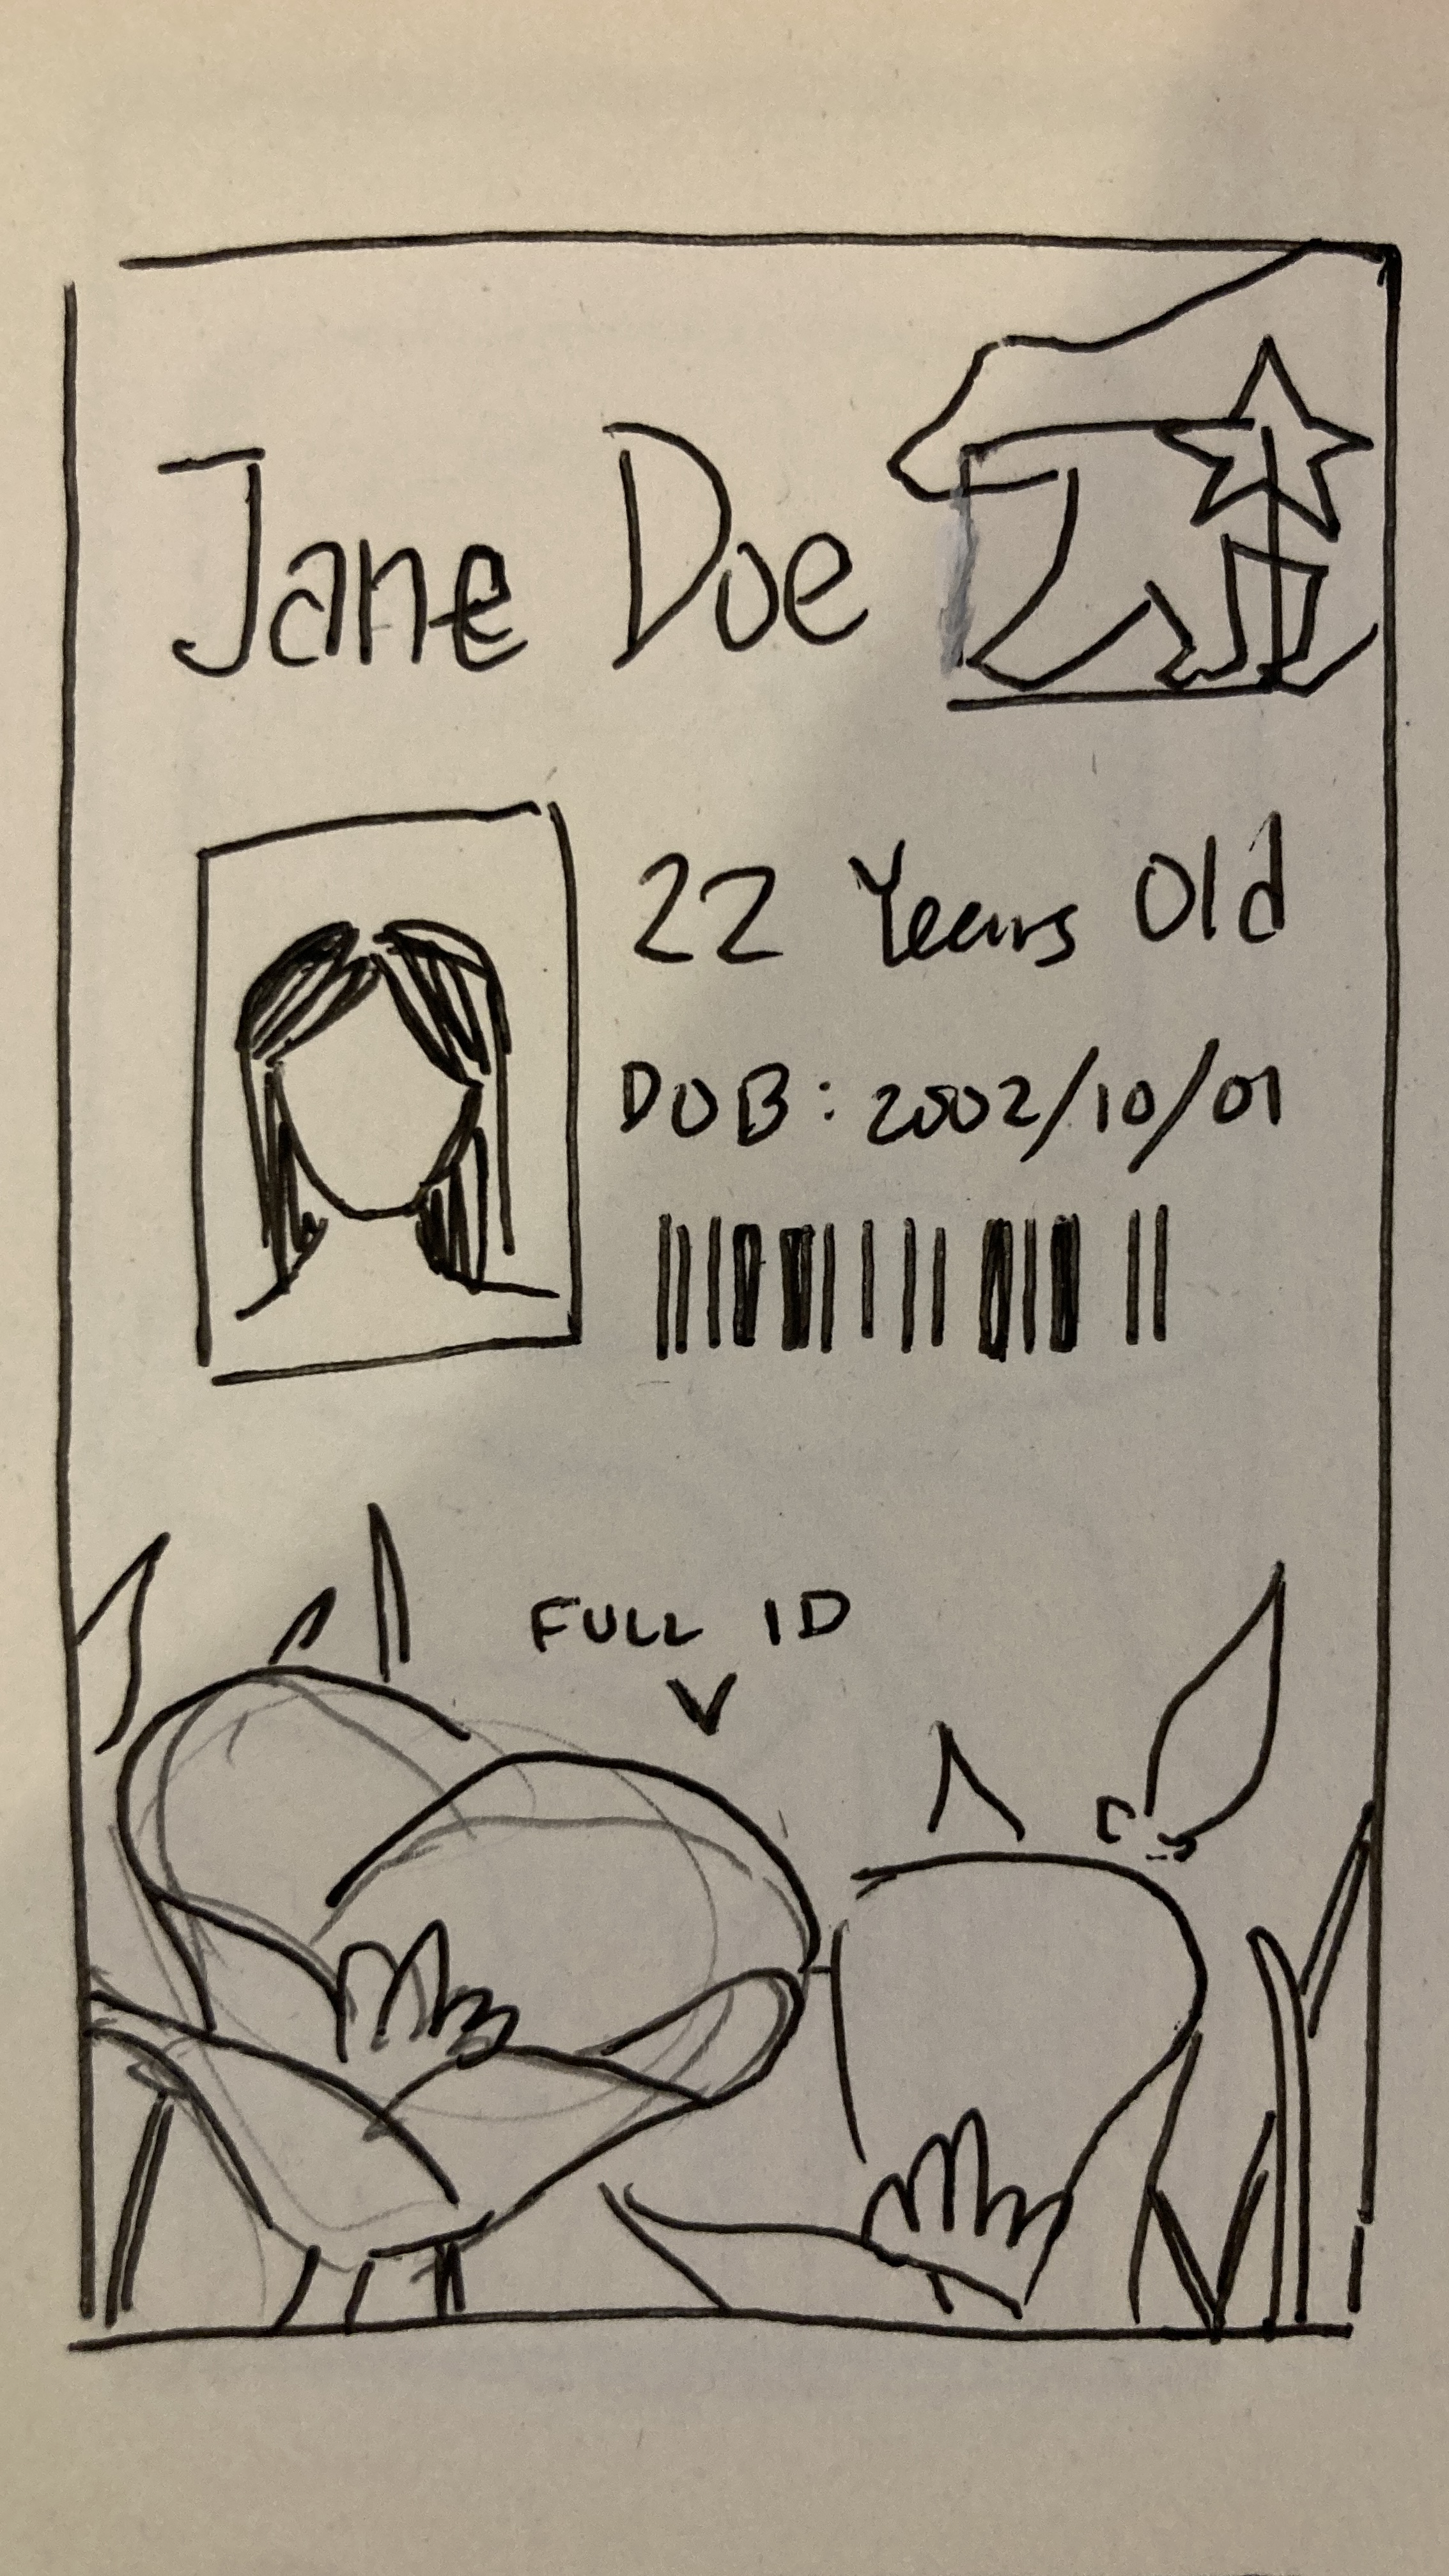 Jane Doe
22 Years Old
DOB: 2002/10/01
FULL ID